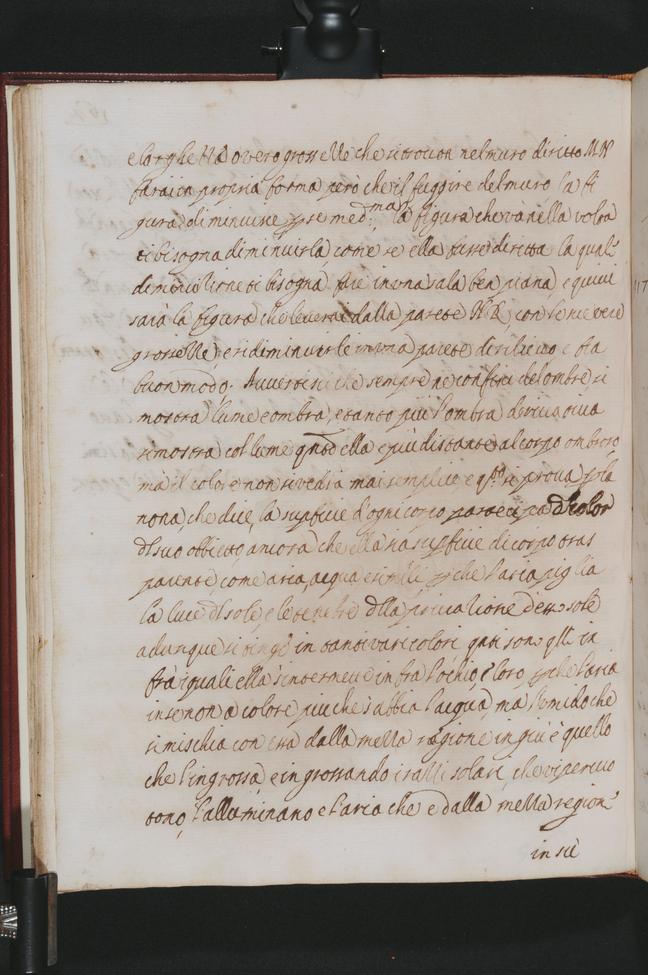 e larghezza overo grossezze che si trovan nel muro diritto MN
farai ca propria forma però che il fuggire del muro la fi
gura diminuisce p se med.ma, la figura che và nella volta
ti bisogna diminuirla, come se ella fusse diritta la qual
diminutione ti bisogna fare in una sala ben piana, e quivi
sarà la figura che leverai dalla parete NR, con le sue vere
grossezze, e ridiminuirle in una parete di rilievo e fia
buon modo. Avvertisci che sempre ne confini del ombre si
mostra lume e ombra, e tanto più l'ombra derivativa
si mostra col lume qnto ella e piu distante al corpo ombroso,
ma il colore non si vedrà mai semplice e qsto si prova p la
nona, che dice, la supficie d'ogni corpo partecipa del color
dl suo obbietto, ancora che ella sia supficie di corpo tras
parente, come aria, acqua e simili p che l'aria piglia
la luce dl sole, e le tenebre dlla privatione d'esso sole
adunque si tinge in tanti varii colori qnti sono qlli in
frà i quali ella s'intermette in fra l'ochio, e loro, p che l'aria
in se non a colore piu che s'abbia l'acqua, ma l'umido che
si mischia con essa dalla mezza ragione in giù è quello
che l'ingrossa, e ingrossando i razzi solari, che vi percuo
tono, l'alluminano e l'aria che e dalla mezza region
in sù